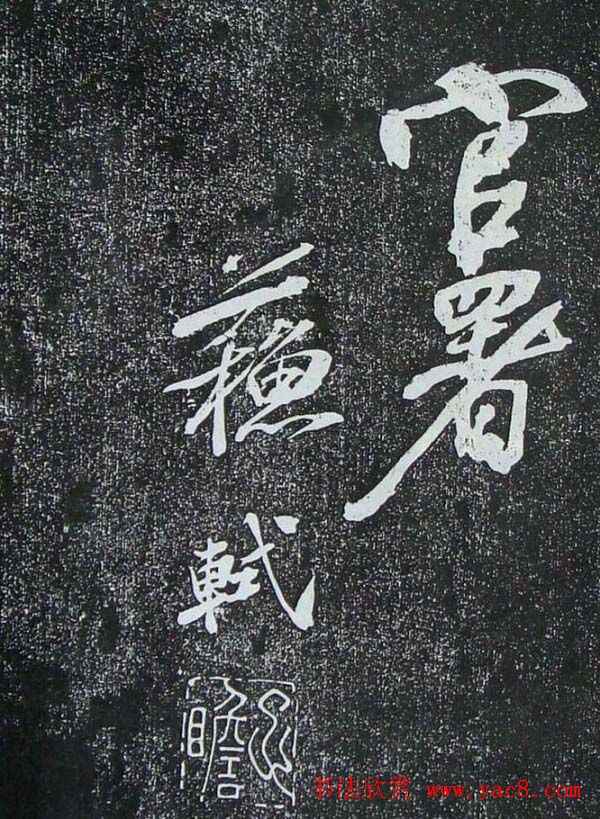 官署
蘇軾
子瞻
书法欣赏 www.yac8.com